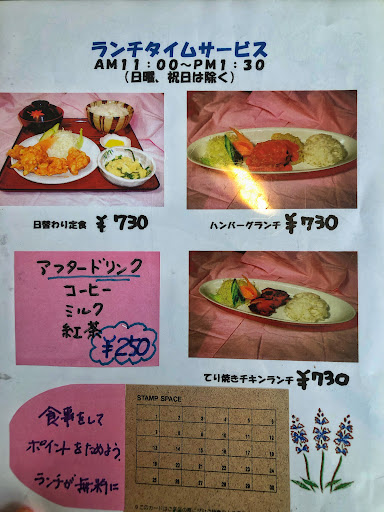 ランチタイムサービス
AM11:00〜PM1:30
(日曜、祝日は除く)
日替わり定食 ¥730
ハンバーグランチ ¥730
アフタードリンク
コーヒー
ミルク
紅茶
¥250
てり焼きチキンランチ ¥730
食事をして
ポイントをためよう
ランチが無料に
STAMP SPACE